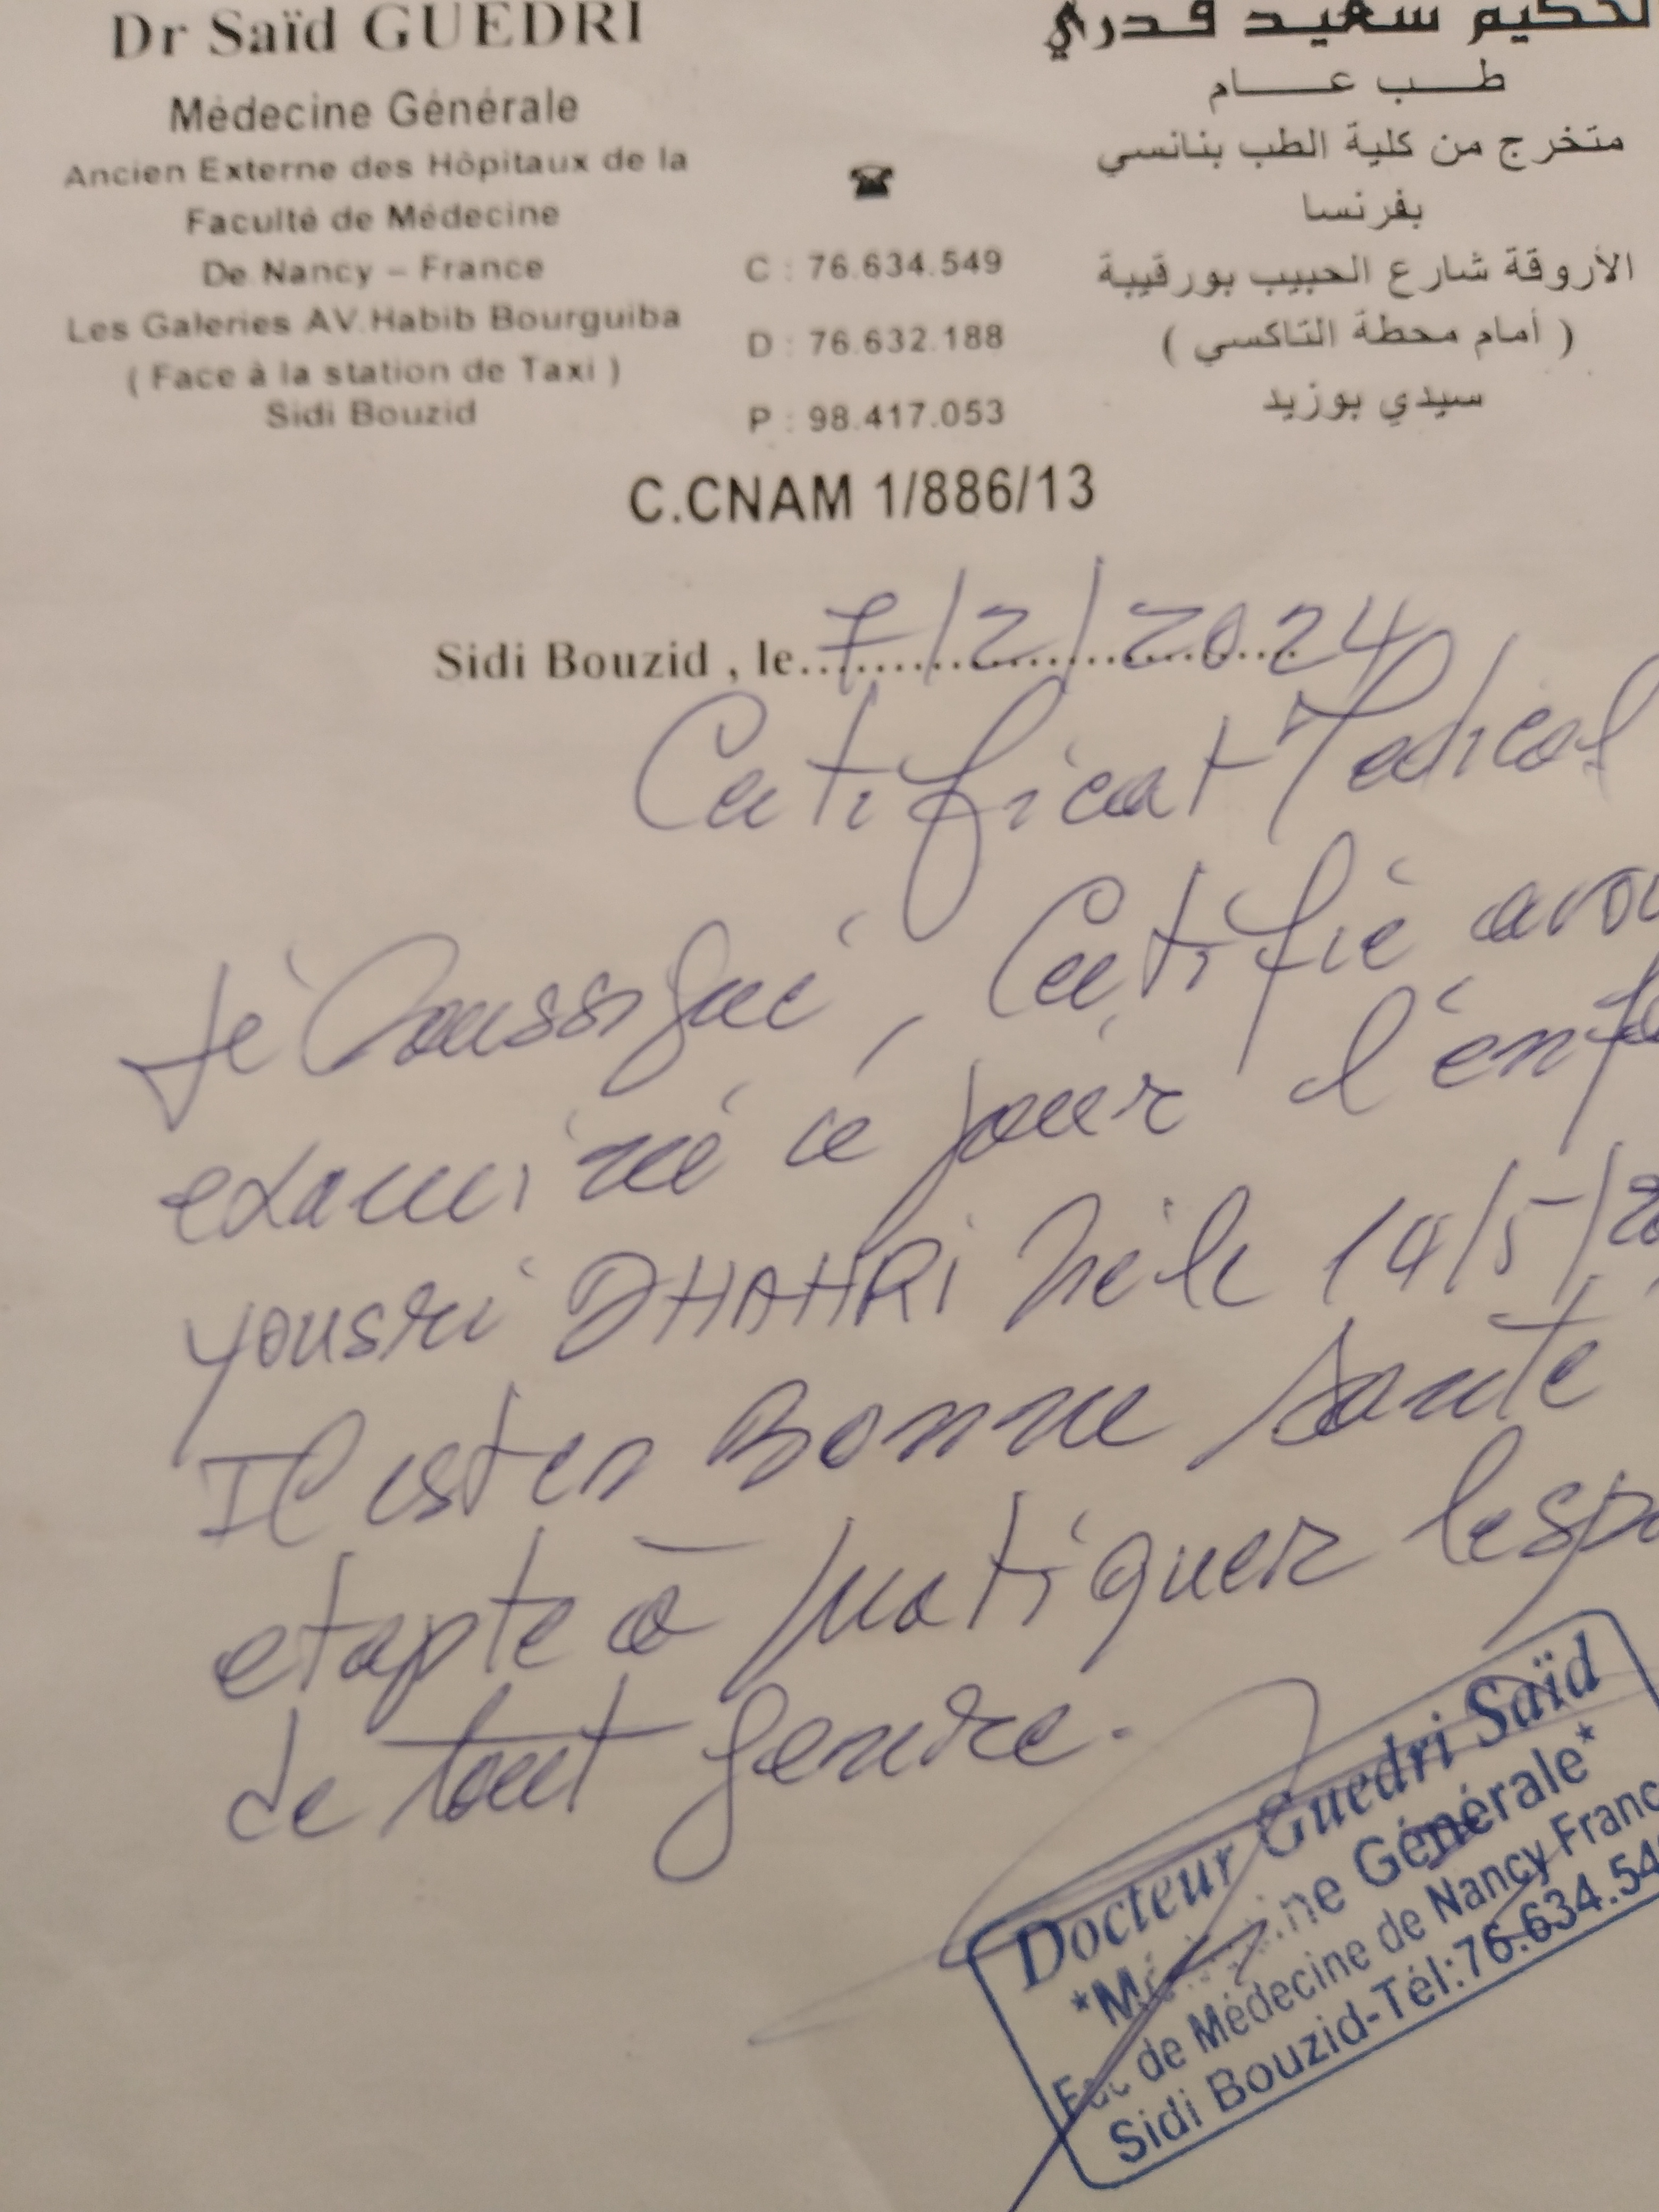 Dr Saïd GUEDRI
Médecine Générale
Ancien Externe des Hôpitaux de la
Faculté de Médecine
De Nancy – France
Les Galeries AV.Habib Bourguiba
( Face à la station de Taxi )
Sidi Bouzid
C : 76.634.549
D : 76.632.188
P : 98.417.053
لحكيم سعيد قدري
طب عام
متخرج من كلية الطب بنانسي
بفرنسا
الأروقة شارع الحبيب بورقيبة
( أمام محطة التاكسي )
سيدي بوزيد
C.CNAM 1/886/13
Sidi Bouzid , le 7/2/2024
Certificat Medical
Je Soussigné, Certifie avoi
examiné ce jour l'enfa
yousri DHAHRi Né le 14/5/20
Il est en Bonne santé
et apte à pratiquer le spo
de tout genre.
Docteur Guedri Saïd
*Médecine Générale*
Fac de Médecine de Nancy Franc
Sidi Bouzid-Tél:76.634.54